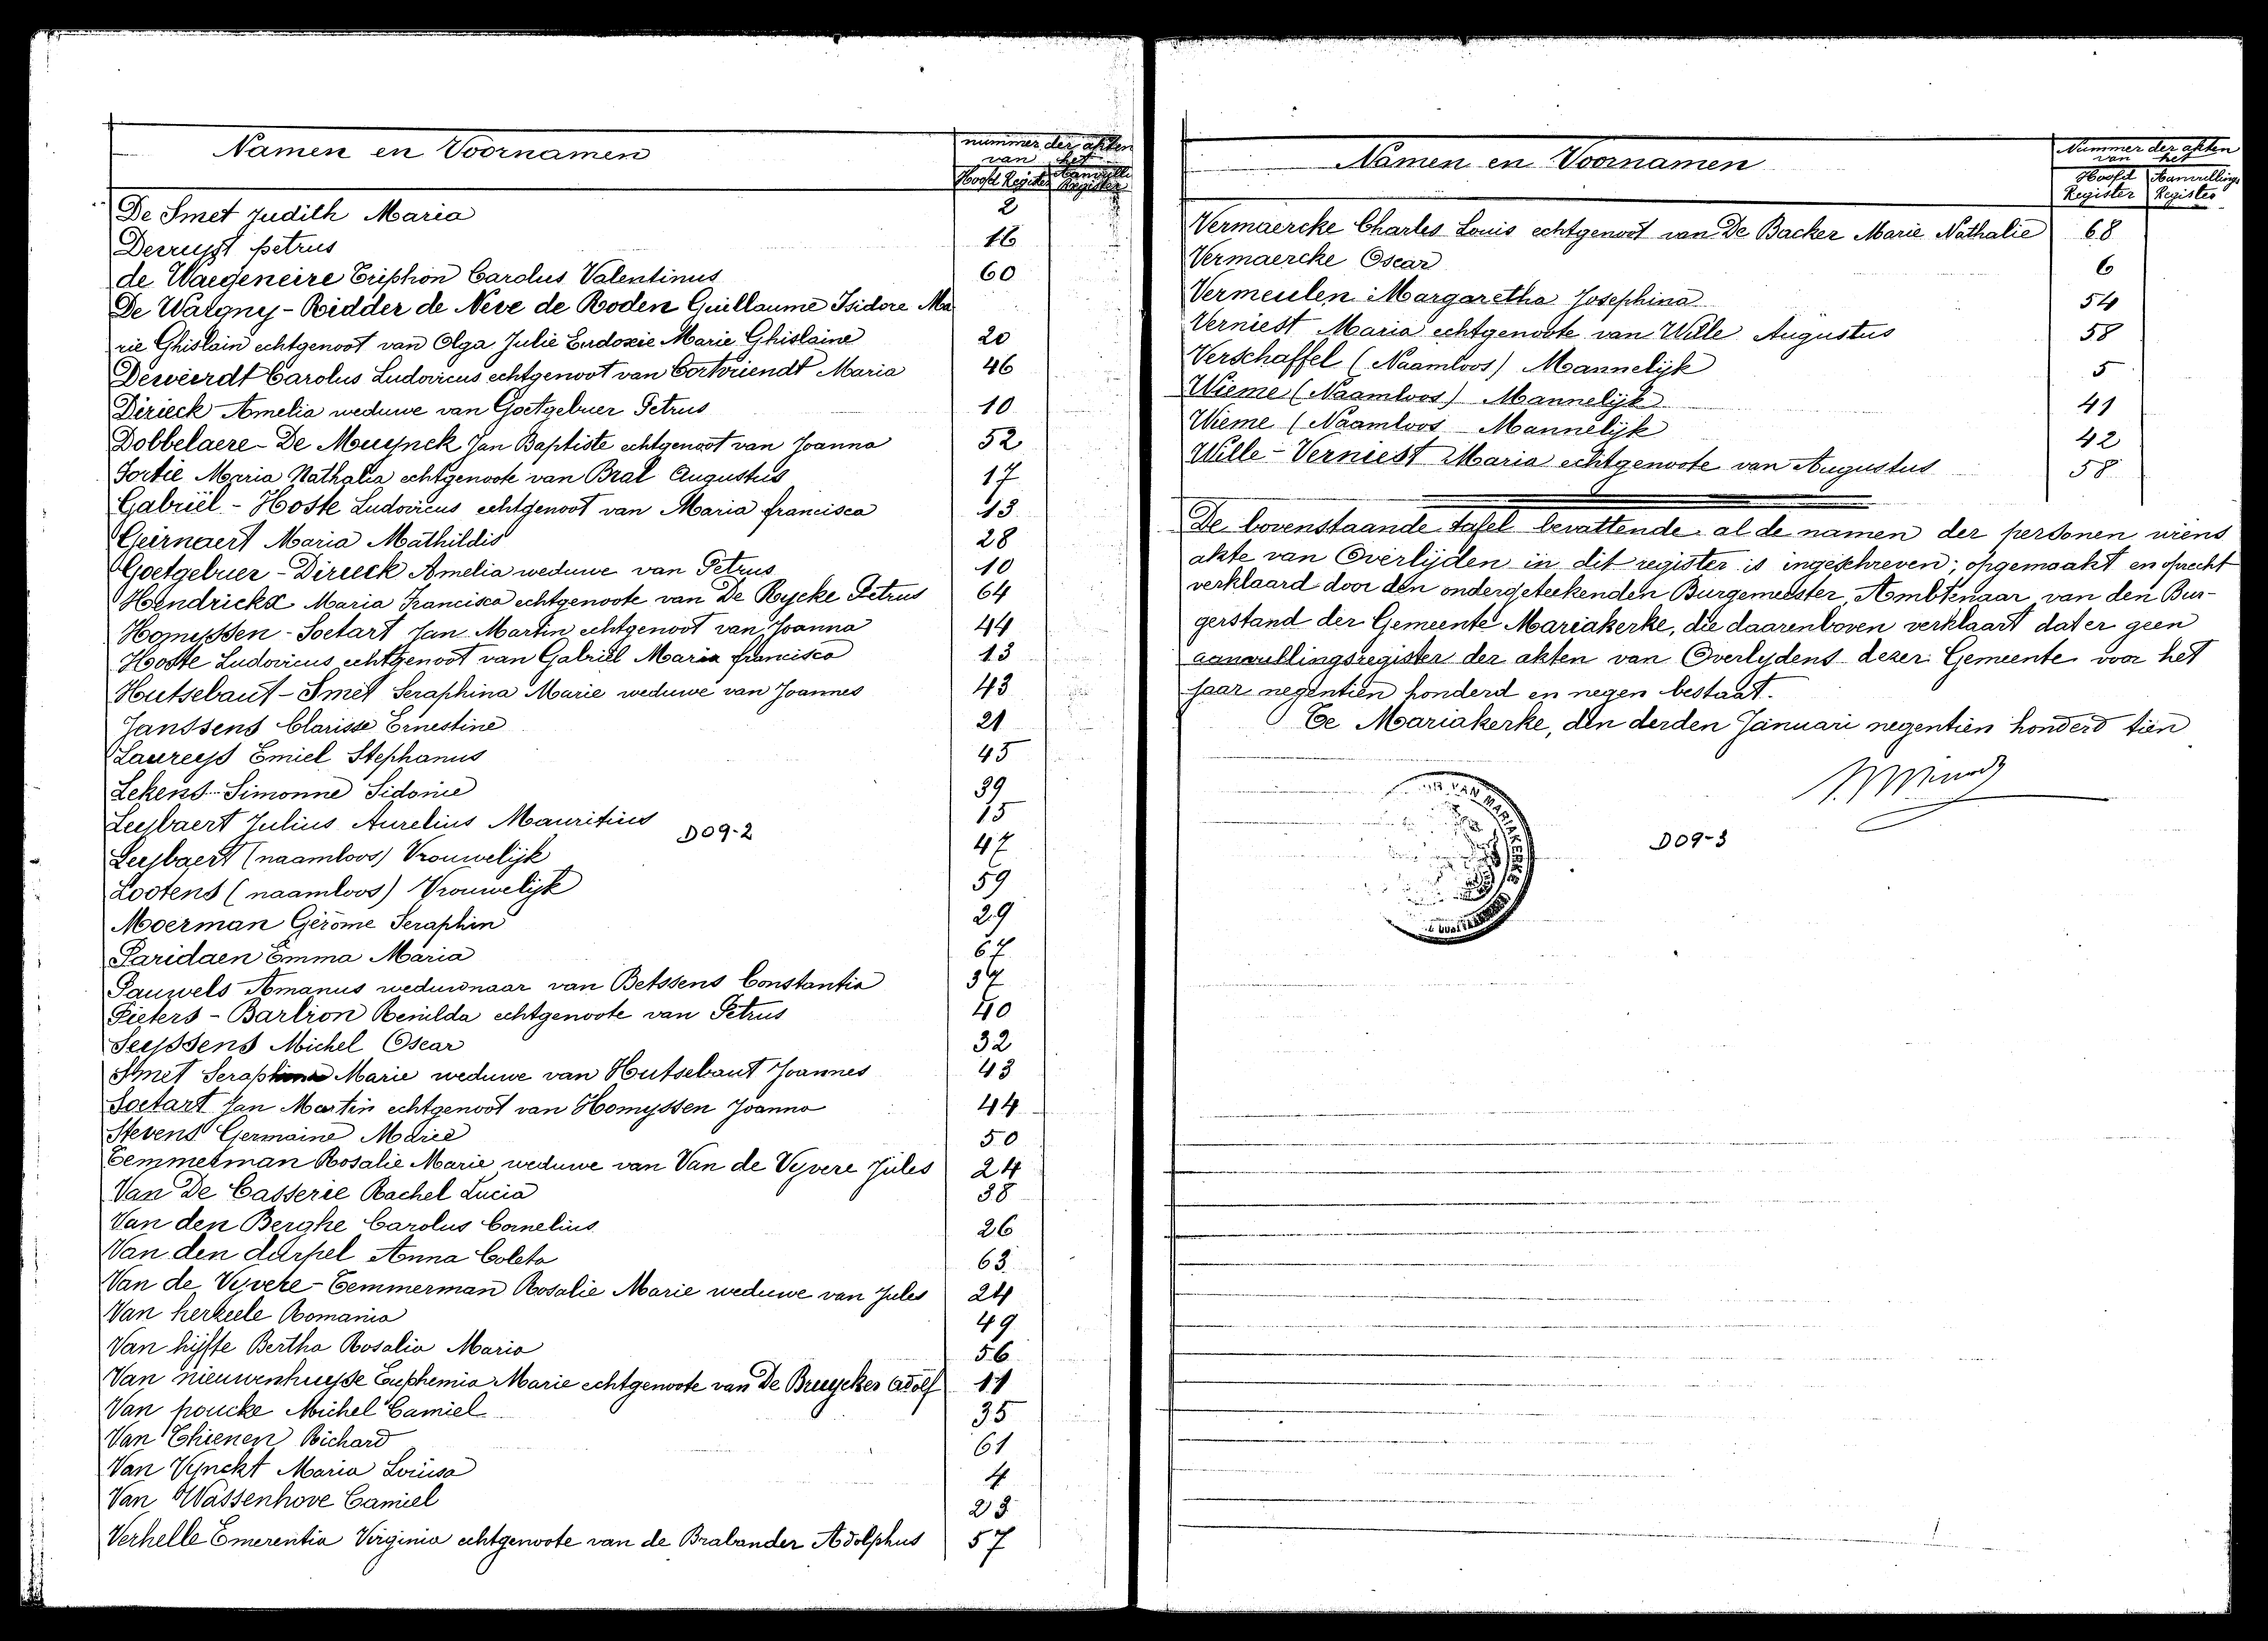 Namen en Voornamen
nummer der akten
van het
Hoofd Register Aanvulli Register
De Smet Judith Maria 2
Deruyst petrus 16
de Waegeneire Triphon Carolus Valentinus 60
De Watgny - Ridder de Neve de Roden Guillaume Isidore Ma
rie Ghislain echtgenoot van Olga Julie Eudoxie Marie Ghislaine 20
Deweerdt Carolus Ludovicus echtgenoot van Cortvriendt Maria 46
Dirieck Amelia weduwe van Goetgebuer Petrus 10
Dobbelaere - De Muynck Jan Baptiste echtgenoot van Joanna 52
Fortie Maria Nathalia echtgenoote van Bral Augustus 17
Gabriël - Hoste Ludovicus echtgenoot van Maria francisca 13
Geirnaert Maria Mathildis 28
Goetgebuer - Dirieck Amelia weduwe van Petrus 10
Hendrickx Maria Francisca echtgenoote van De Rycke Petrus 64
Homyssen - Soetart Jan Martin echtgenoot van Joanna 44
Hoste Ludovicus echtgenoot van Gabriël Maria francisca 13
Hutsebaut - Smet Seraphina Marie weduwe van Joannes 43
Janssens Clarisse Ernestine 21
Laureys Emiel Stephanus 45
Lekens Simonne Sidonie 39
Leybaert Julius Aurelius Mauritius 15
D09-2
Leybaert (naamloos) Vrouwelijk 47
Lootens (naamloos) Vrouwelijk 59
Moerman Gerôme Seraphin 29
Paridaen Emma Maria 67
Pauwels Amanus weduwnaar van Betssens Constantia
Pieters - Barlion Renilda echtgenoote van Petrus 40
Seyssens Michel Oscar 32
Smet Seraphina Marie weduwe van Hutsebaut Joannes 43
Soetart Jan Martin echtgenoot van Homyssen Joanna 44
Stevens Germaine Marie 50
Temmerman Rosalie Marie weduwe van Van de Vyvere Jules 24
Van De Casserie Rachel Lucia 38
Van den Berghe Carolus Cornelius 26
Van den durpel Anna Coleta 63
Van de Vyvere - Temmerman Rosalie Marie weduwe van Jules 24
Van herzeele Romania 49
Van hijfte Bertha Rosalia Maria 56
Van nieuwenhuyse Euphemia Marie echtgenoote van De Bruycker Adolf 11
Van poucke Michel Camiel 35
Van Thienen Richard 61
Van Vynckt Maria Louisa 4
Van Wassenhove Camiel 23
Verhelle Emerentia Virginia echtgenoote van de Brabander Adolphus 57
Namen en Voornamen
Nummer der akten
van het
Hoofd Register Aanvullings Register
Vermaercke Charles Louis echtgenoot van De Backer Marie Nathalie 68
Vermaercke Oscar 6
Vermeulen Margaretha Josephina 54
Verniest Maria echtgenoote van Wille Augustus 58
Verschaffel (Naamloos) Mannelijk 5
Wieme (Naamloos) Mannelijk 41
Wieme (Naamloos Mannelijk 42
Wille - Verniest Maria echtgenoote van Augustus 58
De bovenstaande tafel bevattende al de namen der personen wiens
akte van Overlijden in dit register is ingeschreven; opgemaakt en oprecht
verklaard door den ondergeteekenden Burgemeester, Ambtenaar van den Bur-
gerstand der Gemeente Mariakerke, die daarenboven verklaart dat er geen
aanvullingsregister der akten van Overlydens dezer Gemeente voor het
jaar negentien honderd en negen bestaat.
Te Mariakerke, den derden Januari negentien honderd tien
D09-3